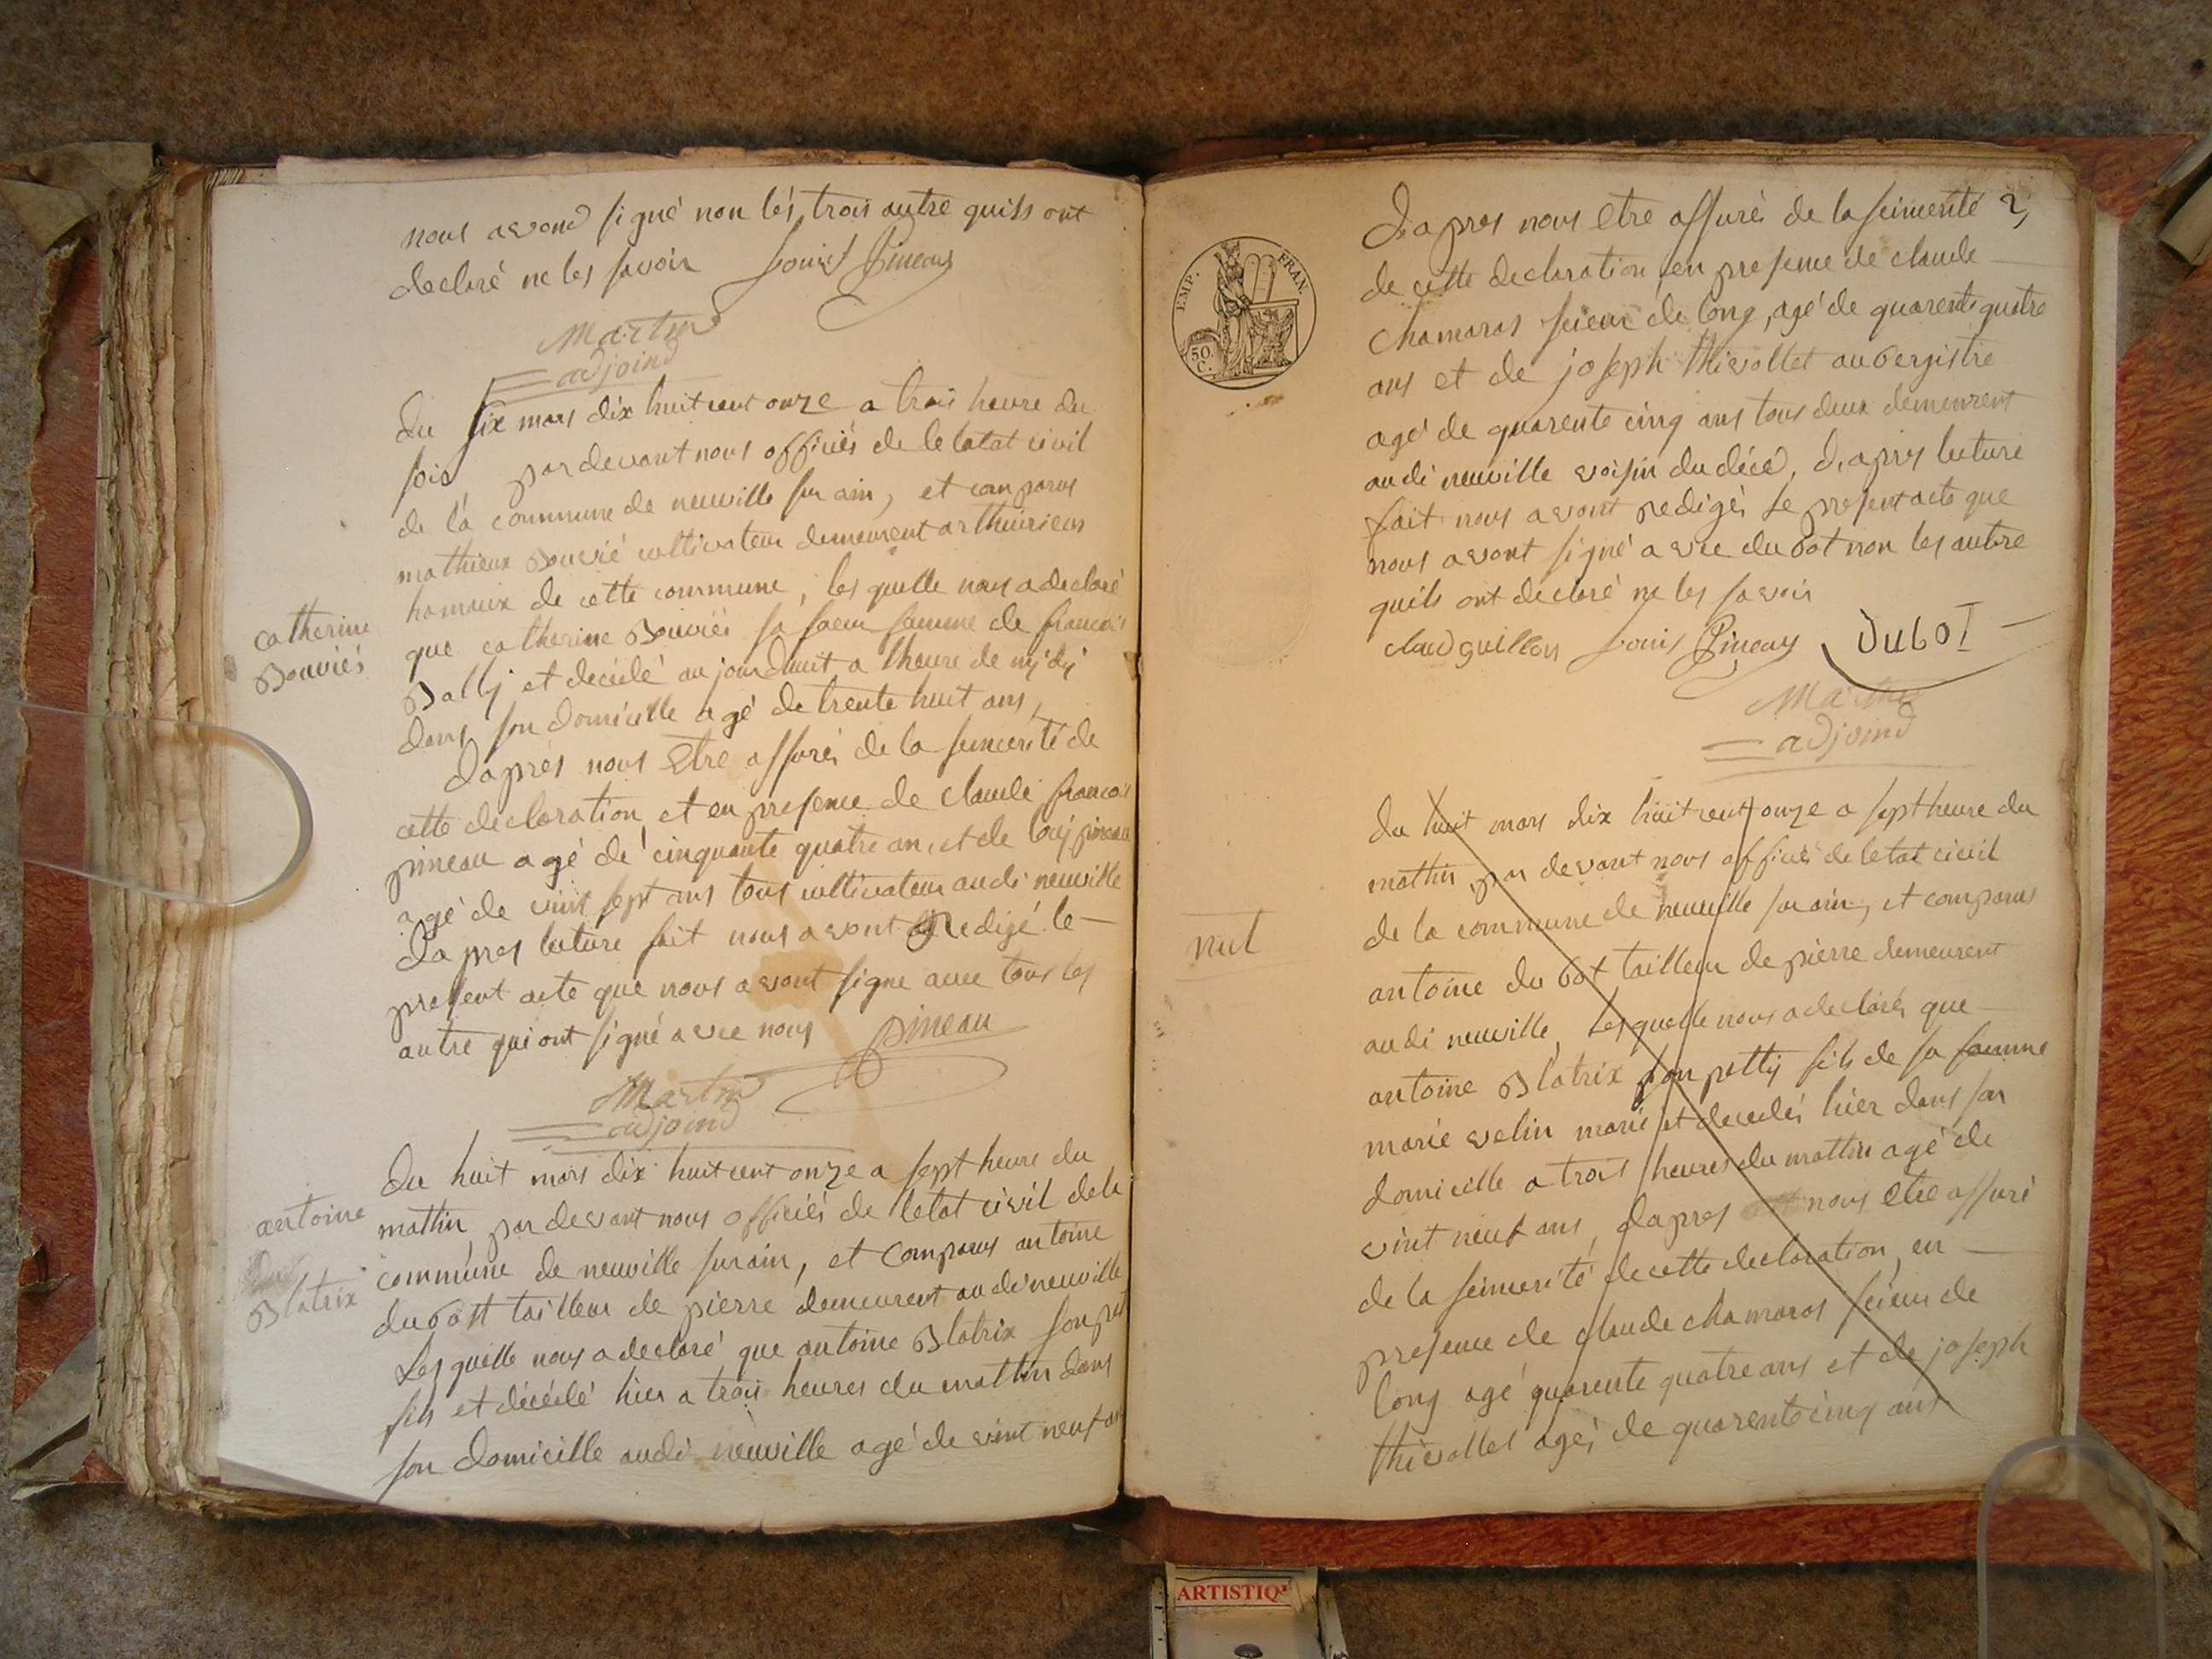 nous avond signé non lés trois autre quils ont
declaré ne les savoir Louis Pineau
Martin
adjoind
du six mars dix huit cent onze a trois heure du
soid par devant nous officiés de le latat civil
de la commune de neuville sur ain, et comparus
mathieux Bouvié cultivateur demeurent a
hamaux de cette commune, les quelle nous a declaré
catherine
Bouviés
que catherine Bouviés sa soeur famme de francois
Bally et decédé au jourdhuit a lheure de mydy
dans son domicille agé de trente huit ans,
daprés nous Etre assurés de la sincerité de
cette decleration et en presence de claude francois
pineau agé de cinquante quatre an, et de louy pineau
agé de vint sept ans tous cultivateur audi neuville
dapres lecture fait nous avont redigé le
present acte que nous avont signe avec tous les
autre qui ont signé avec nous Pineau
Martin
adjoind
du huit mars dix huit cent onze a sept heure du
antoine
Blatrix
mattin par devant nous officiés de letat civil de la
commune de neuville sur ain, et comparus antoine
dubost tailleur de pierre demeurent au di neuville
Les quelle nous a declaré que antoine Blatrix son
fils et décédé hier a trois heures du mattin dans
son domicille audi neuville agé de vint neuf
EMP. FRAN.
50.
C.
2,
dapres nous Etre assurés de la seinserité
de cette decleration, en presence de claude
chamaras scieur de long, agé de quarente quatre
ans et de joseph thievollet aubergistre
agé de quarente cinq ans tous deux demeurent
au di neuville voisin du décé, dapres lecture
fait nous avont redigés le present acte que
nous avont signé avec dubot non les autre
quils ont declaré ne les savoir
claud guillon Louis Pineau DUBOT
Martin
adjoind
du huit mars dix huit cent onze a sept heure du
mattin par devant nous officiés de letat civil
de la commune de neuville sur ain, et comparus
nul
antoine du bot tailleur de pierre demeurent
au di neuville, Les quelle nous a declarés que
antoine Blatrix son petty fils de sa famme
marie velin marié et decedés hier dans son
domicille a trois heures du mattin agé de
vint neuf ans, dapres nous etre assuré
de la seincerité de cette decleration, en
presence de claude chamaras scieur de
long agé quarente quatre ans et de joseph
thievollet agés de quarente cinq ans
ARTISTIQ